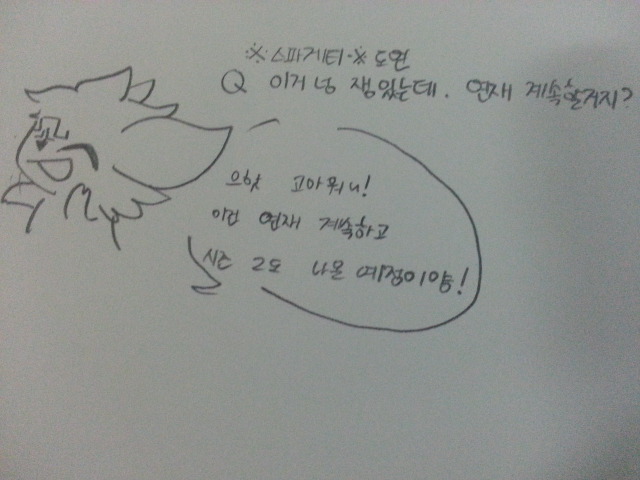 ※스파게티※ 도연
Q 이거 넘 잼있는데. 연재 계속할거지?
으핫 고아워니!
이건 연재 계속하고
시즌 2도 나올 예정이얌!